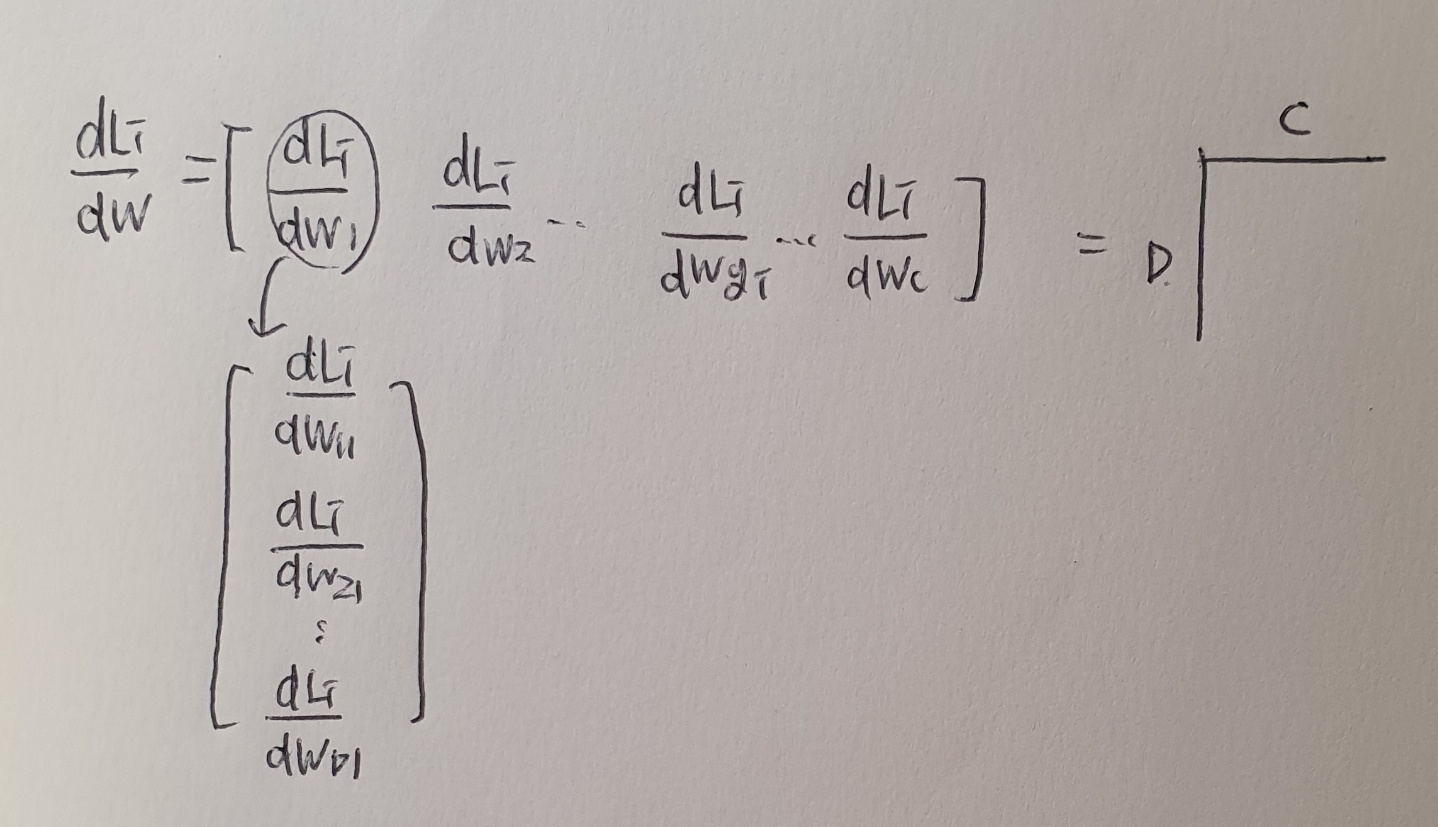 dLi/dW = [ dLi/dW1 dLi/dW2 ... dLi/dWyi ... dLi/dWc ] = D. C
[ dLi/dW11
dLi/dW21
⋮
dLi/dWD1 ]